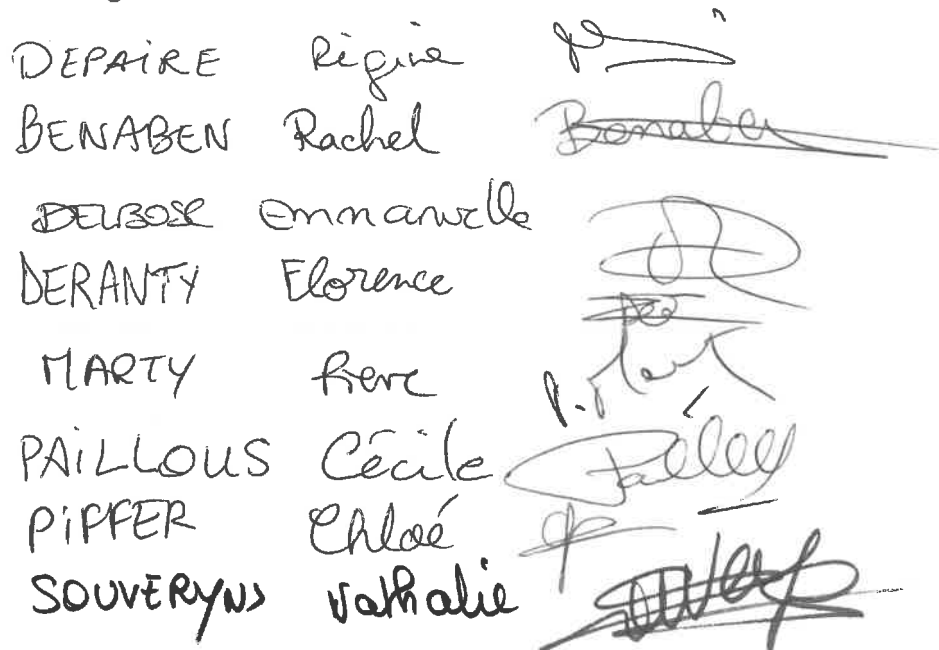 DEPAIRE Régine
BENABEN Rachel Benaben
DELBOSC Emmanuelle
DERANTY Florence
MARTY Pierre P. Mart
PAILLOUS Cécile
PIFFER Chloé
SOUVERYNS Nathalie